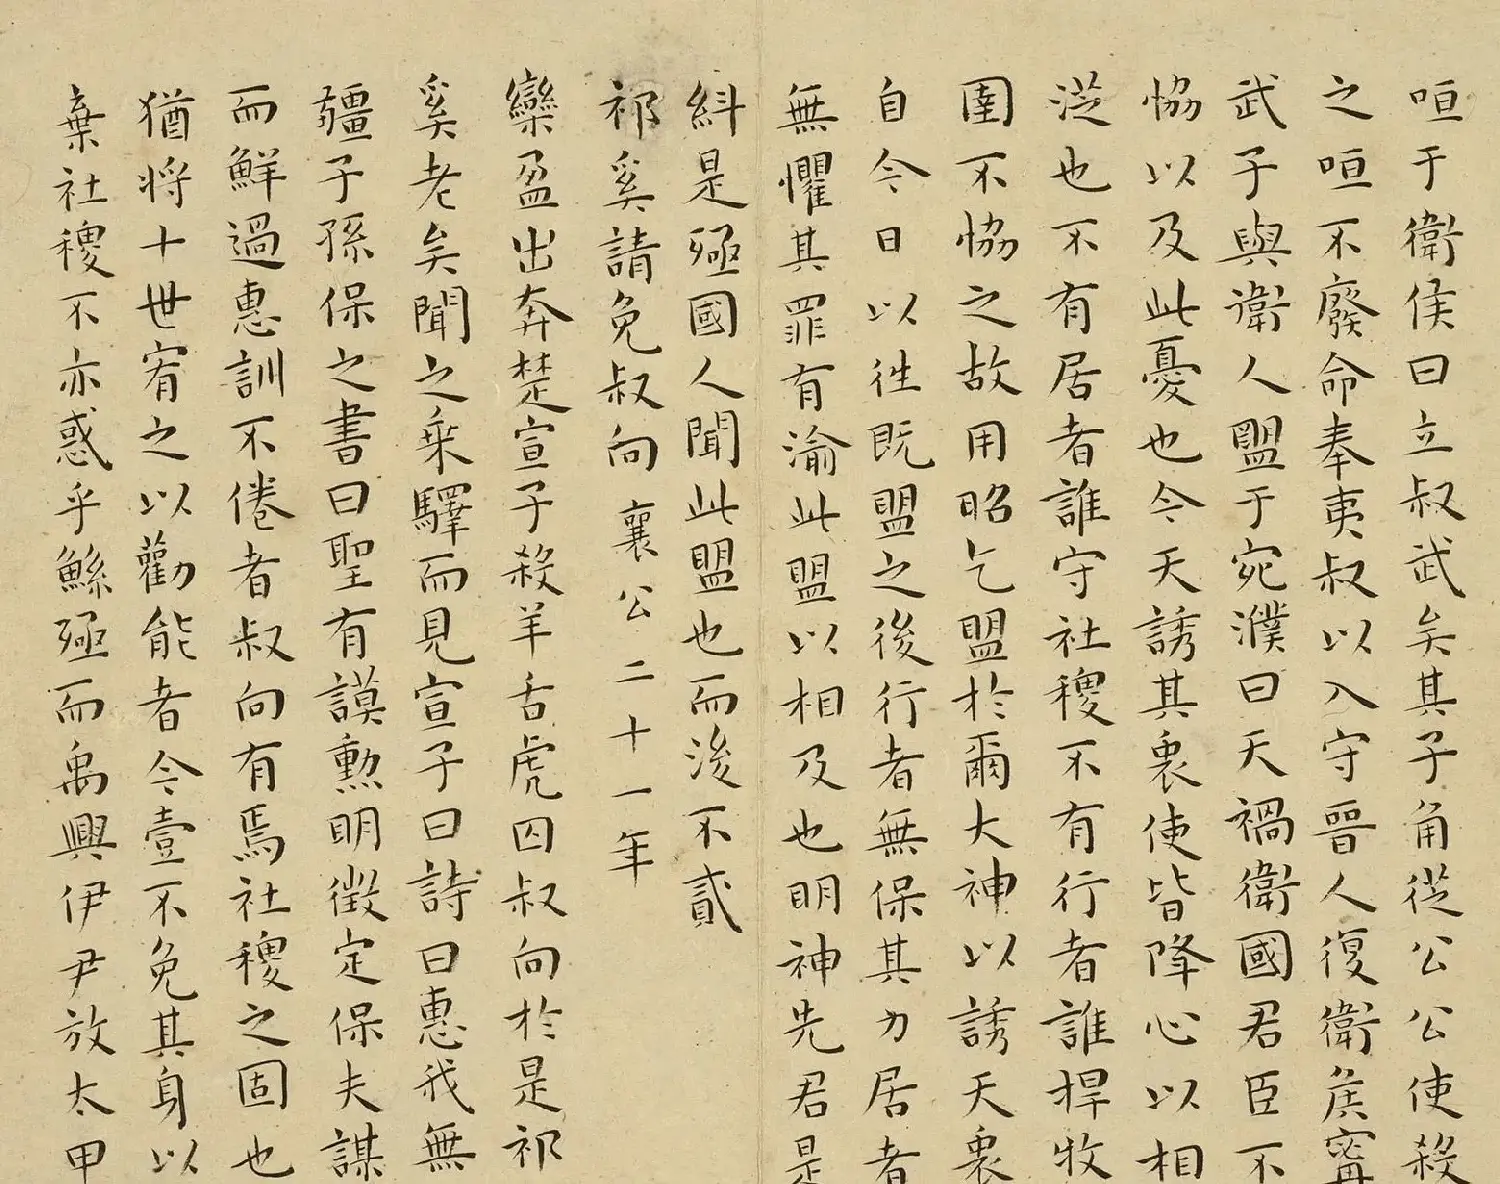 咺于衛侯曰立叔武矣其子角從公公使殺
之咺不廢命奉夷叔以入守晉人復衛侯甯
武子與衛人盟于宛濮曰天禍衛國君臣不
恊以及此憂也今天誘其衷使皆降心以相
從也不有居者誰守社稷不有行者誰捍牧
圉不恊之故用昭乞盟於爾大神以誘天衷
自今日以往既盟之後行者無保其力居者
無懼其罪有渝此盟以相及也明神先君是
糾是殛國人聞此盟也而後不貳
祁奚請免叔向 襄公二十一年
欒盈出奔楚宣子殺羊舌虎囚叔向於是祁
奚老矣聞之乘驛而見宣子曰詩曰惠我無
疆子孫保之書曰聖有謨勲明徵定保夫謀
而鮮過惠訓不倦者叔向有焉社稷之固也
猶將十世宥之以勸能者今壹不免其身以
棄社稷不亦惑乎鯀殛而禹興伊尹放太甲